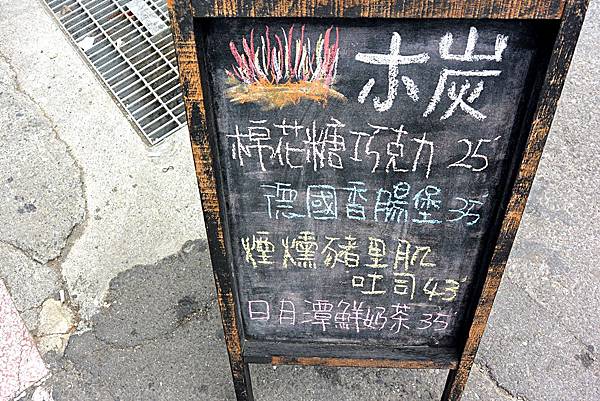 木炭
棉花糖巧克力 25'
德國香腸堡 35'
煙燻豬里肌
吐司 43'
日月潭鮮奶茶 35'